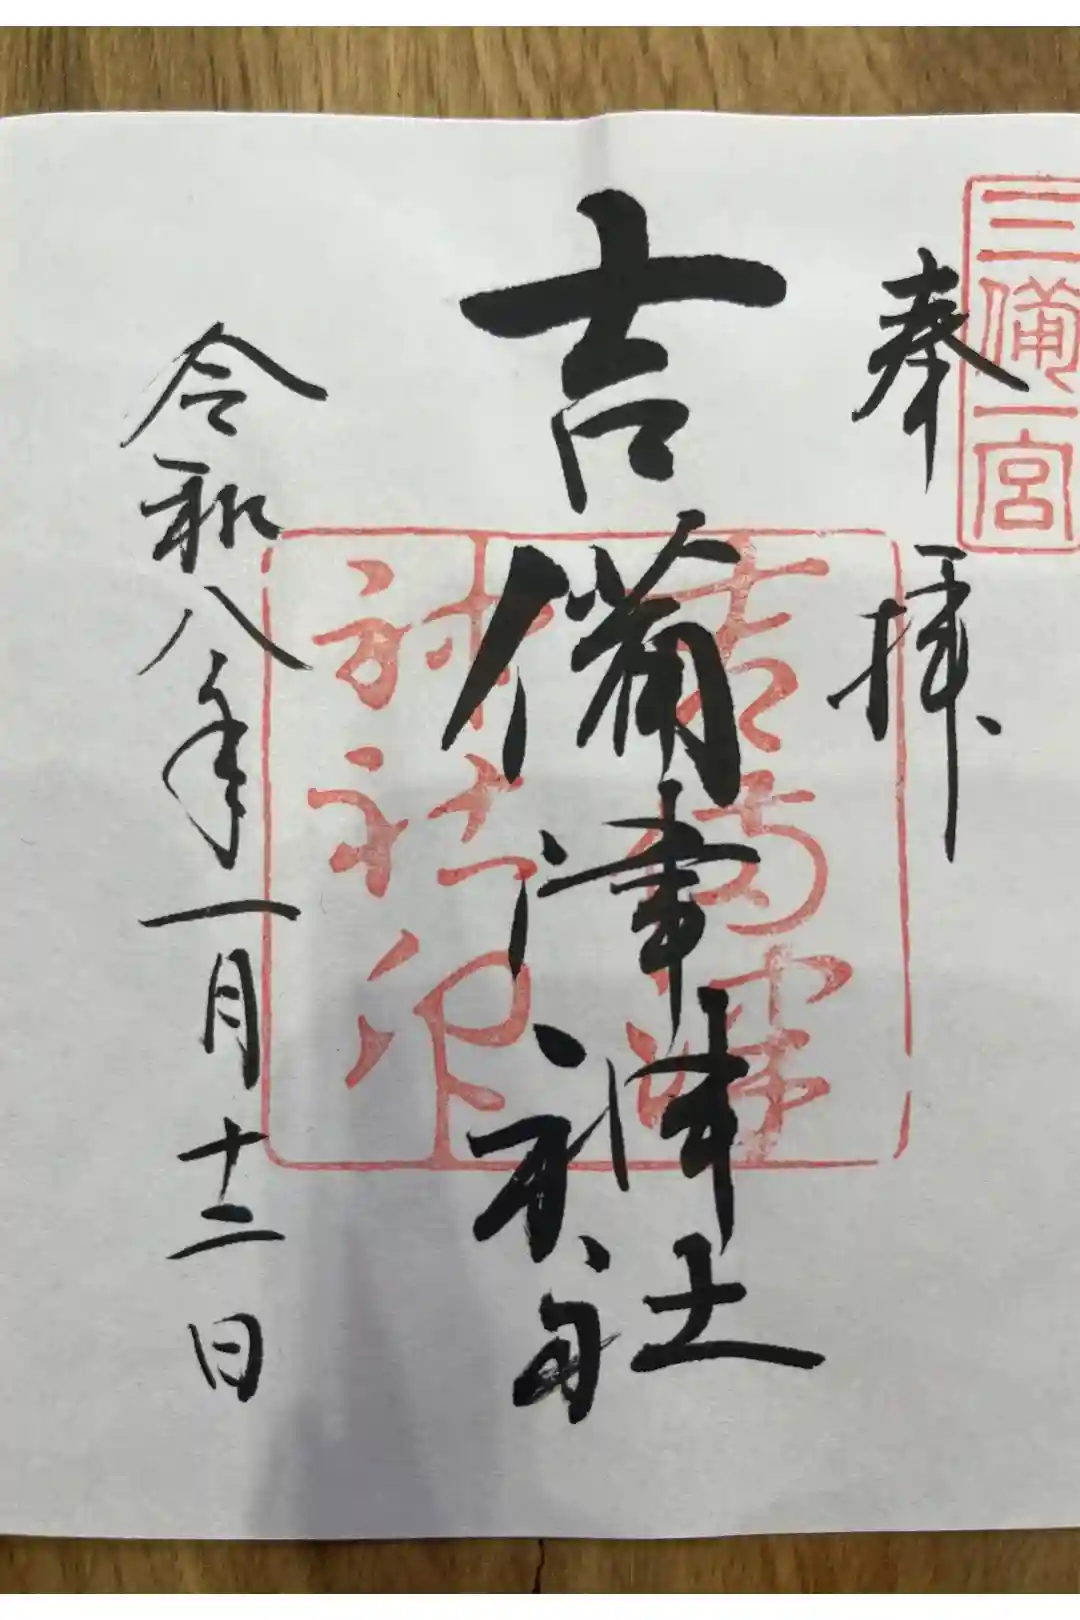 三備一宮
奉拝
吉備津神社
吉備津
神社印
令和八年一月十二日